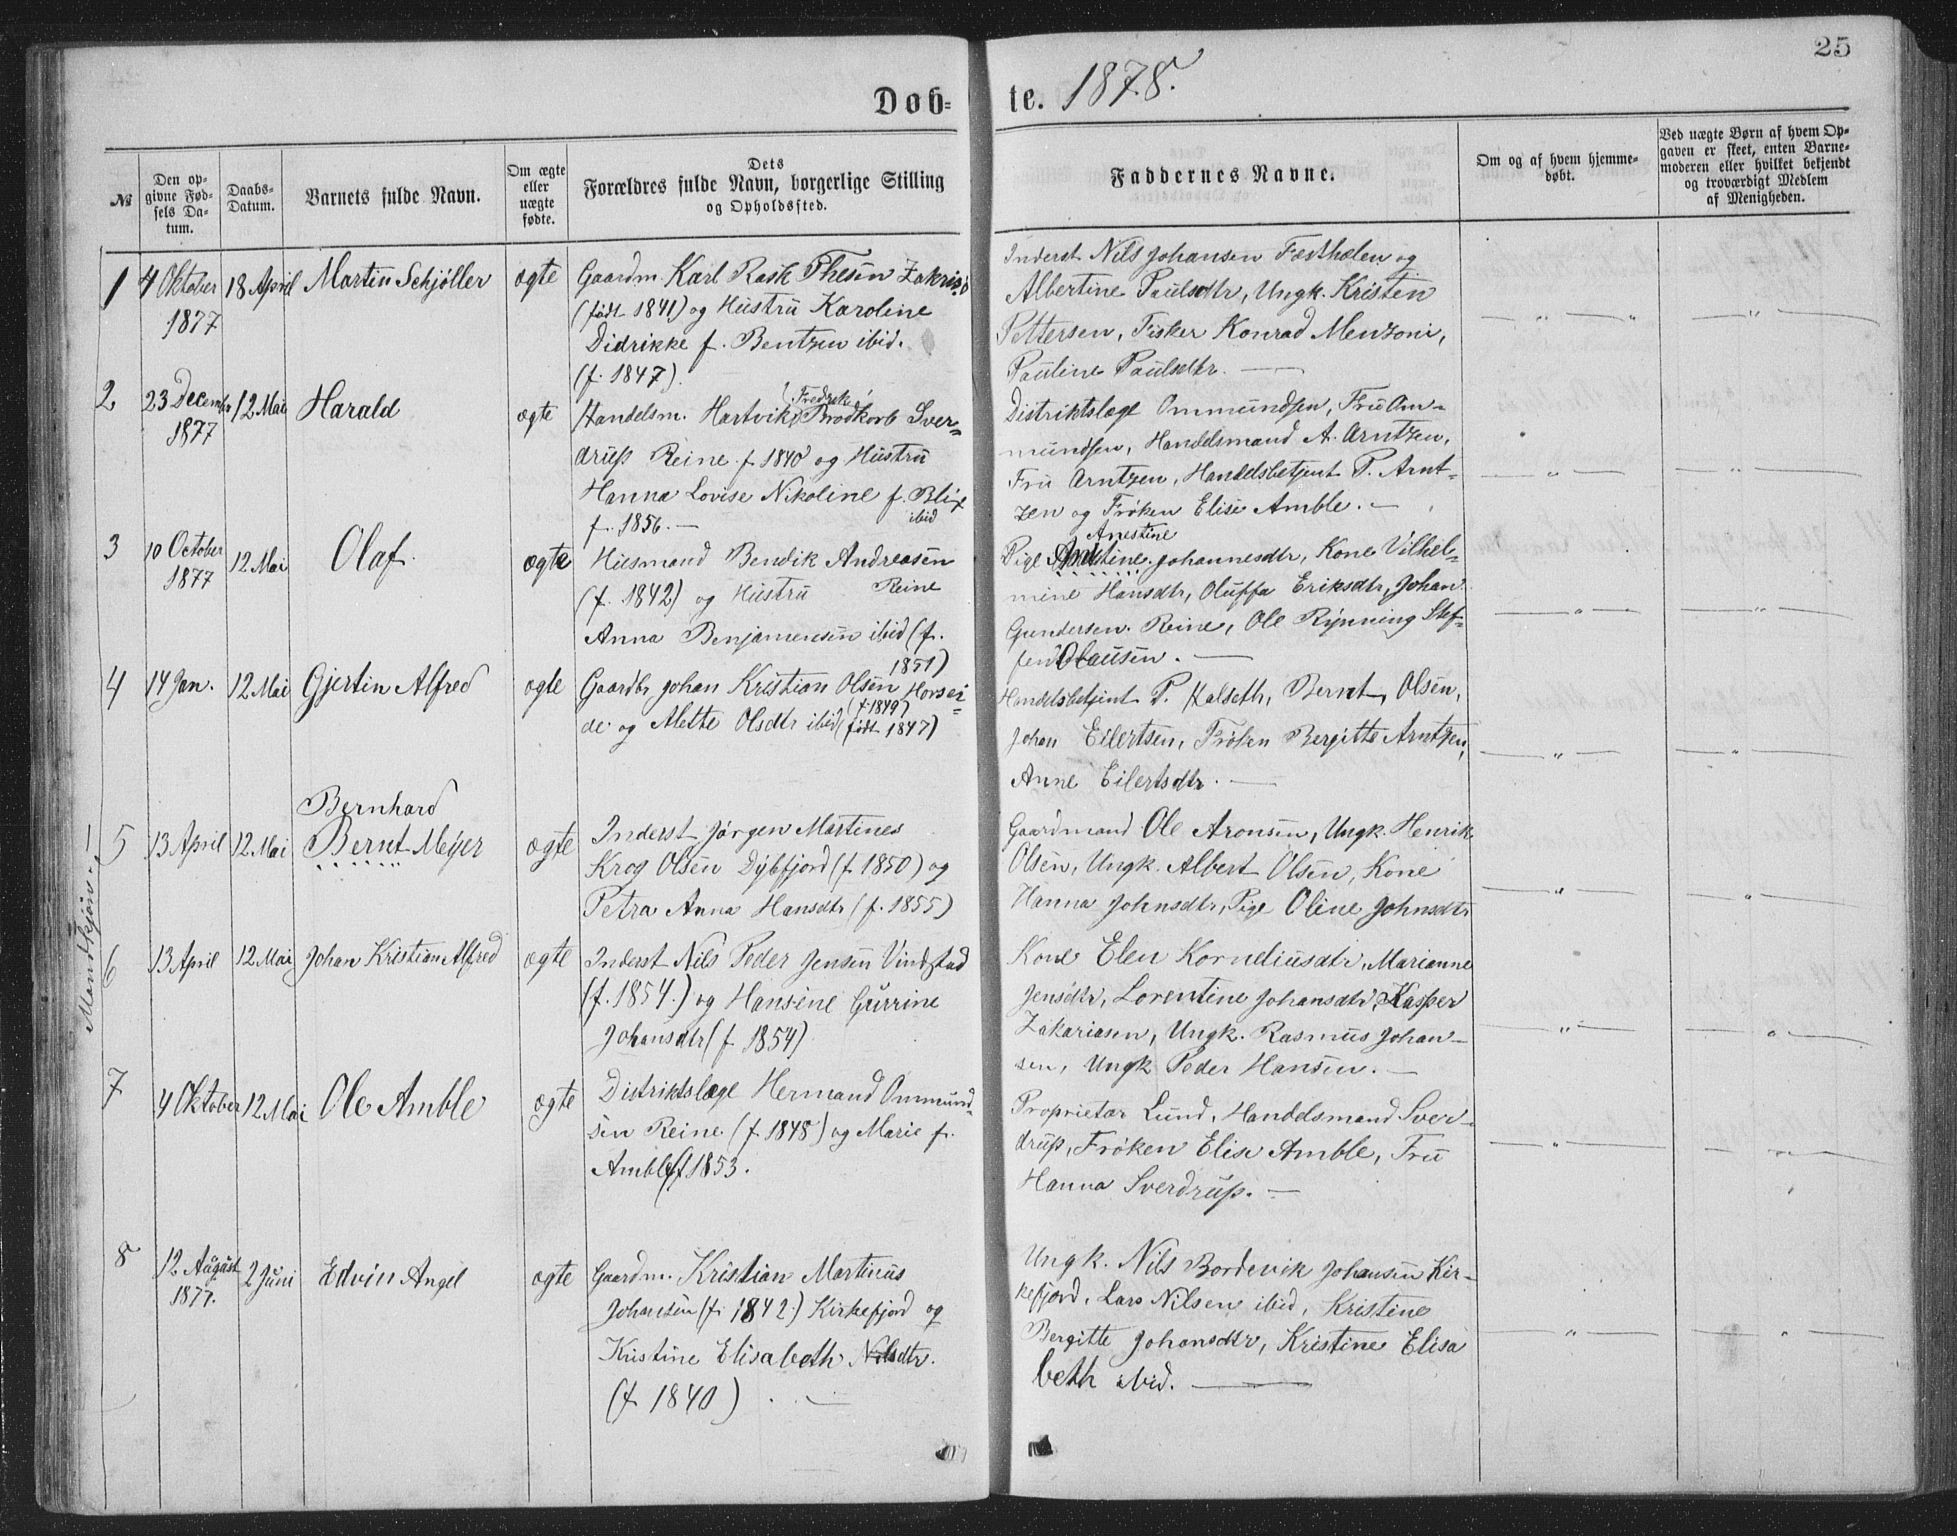 25
Døb-te. 1878.
№
Den op-
givne Fød-
sels Da-
tum.
Daabs-
Datum.
Barnets fulde Navn.
Om ægte
eller
uægte
fødte.
Dets
Forældres fulde Navn, borgerlige Stilling
og Opholdssted.
Faddernes Navne.
Om og af hvem hjemme-
døbt.
Ved uægte Børn af hvem Op-
gaven er skeet, enten Barne-
moderen eller hvilket bekjendt
og troværdigt Medlem
af Menigheden.
Mandkjøn.
1 4 Oktober 18 April Martin Schjøller ægte
1877
Gaardm. Karl Rask Thesen Zakrisø
(født 1841) og Hustru Karoline
Didrikke f. Bentzen ibid.
(f. 1847).
Inderst Nils Johansen Festhælen og
Albertine Paulsdtr, Ungk. Kristen
Pettersen, Fisker Konrad Menzoni,
Pauline Paulsdtr. —
2 23 Decemb 12 Mai Harald ægte
1877
Fredrik
Handelsm. Hartvik Brodkorb Sver-
drup Reine f. 1840 og Hustru
Hanna Lovise Nikoline f. Blix
f. 1856. — ibid
Distriktslæge Ommundsen, Fru Om-
mundsen, Handelsmand A. Arntzen,
Fru Arntzen, Handelsbetjent P. Arnt-
zen og Frøken Elise Amble. —
3 10 October 12 Mai Olaf ægte
1877
Husmand Bendik Andreasen
(f. 1842) og Hustru Reine
Anna Benjamensen ibid (f.
1851)
Anestine
Pige Johannesdtr, Kone Vilhel-
mine Hansdtr, Oluffa Eriksdtr, Johan
Gundersen Reine, Ole Rynning Stef-
fen Olausen. —
4 14 Jan. 12 Mai Gjertin Alfred ægte
Gaardbr Johan Kristian Olsen Horsei-
(f. 1849)
de og Alette Olsdtr ibid (født 1847)
Handelsbetjent P. Halseth, Bernt Olsen,
Johan Eilertsen, Frøken Bergitte Arntzen,
Anne Eilertsdtr. —
Bernhard
5 13 April 12 Mai Bernt Meyer ægte
Inderst Jørgen Martines
Krog Olsen Dybfjord (f. 1850) og
Petra Anna Hansdtr (f. 1855)
Gaardmand Ole Aronsen, Ungk. Henrik
Olsen, Ungk. Albert Olsen, Kone
Hanna Johnsdtr, Pige Oline Johnsdtr
6 13 April 12 Mai Johan Kristian Alfred ægte
Inderst Nils Peder Jensen Vindstad
(f. 1854.) og Hansine Gurrine
Johansdtr (f 1854)
Kone Elen Korneliusdtr, Marianne
Jensdtr, Lorentine Johansdtr, Kasper
Zakariasen, Ungk. Rasmus Johan-
sen, Ungk Peder Hansen. —
7 4 Oktober 12 Mai Ole Amble ægte
Distriktslæge Hermand Ommund-
sen Reine (f. 1848) og Marie f.
Amble (f 1853.
Proprietær Lund, Handelsmand Sver-
drup, Frøken Elise Amble, Fru
Hanna Sverdrup. —
8 12 August 2 Juni Edvin Angel ægte
1877.
Gaardm. Kristian Martinus
Johansen (f. 1842.) Kirkefjord og
Kristine Elisabeth Nilsdtr.
(f. 1840)
Ungk. Nils Bordevik Johansen Kir-
kefjord, Lars Nilsen ibid, Kristine
Bergitte Johansdtr, Kristine Elisa
beth ibid. —